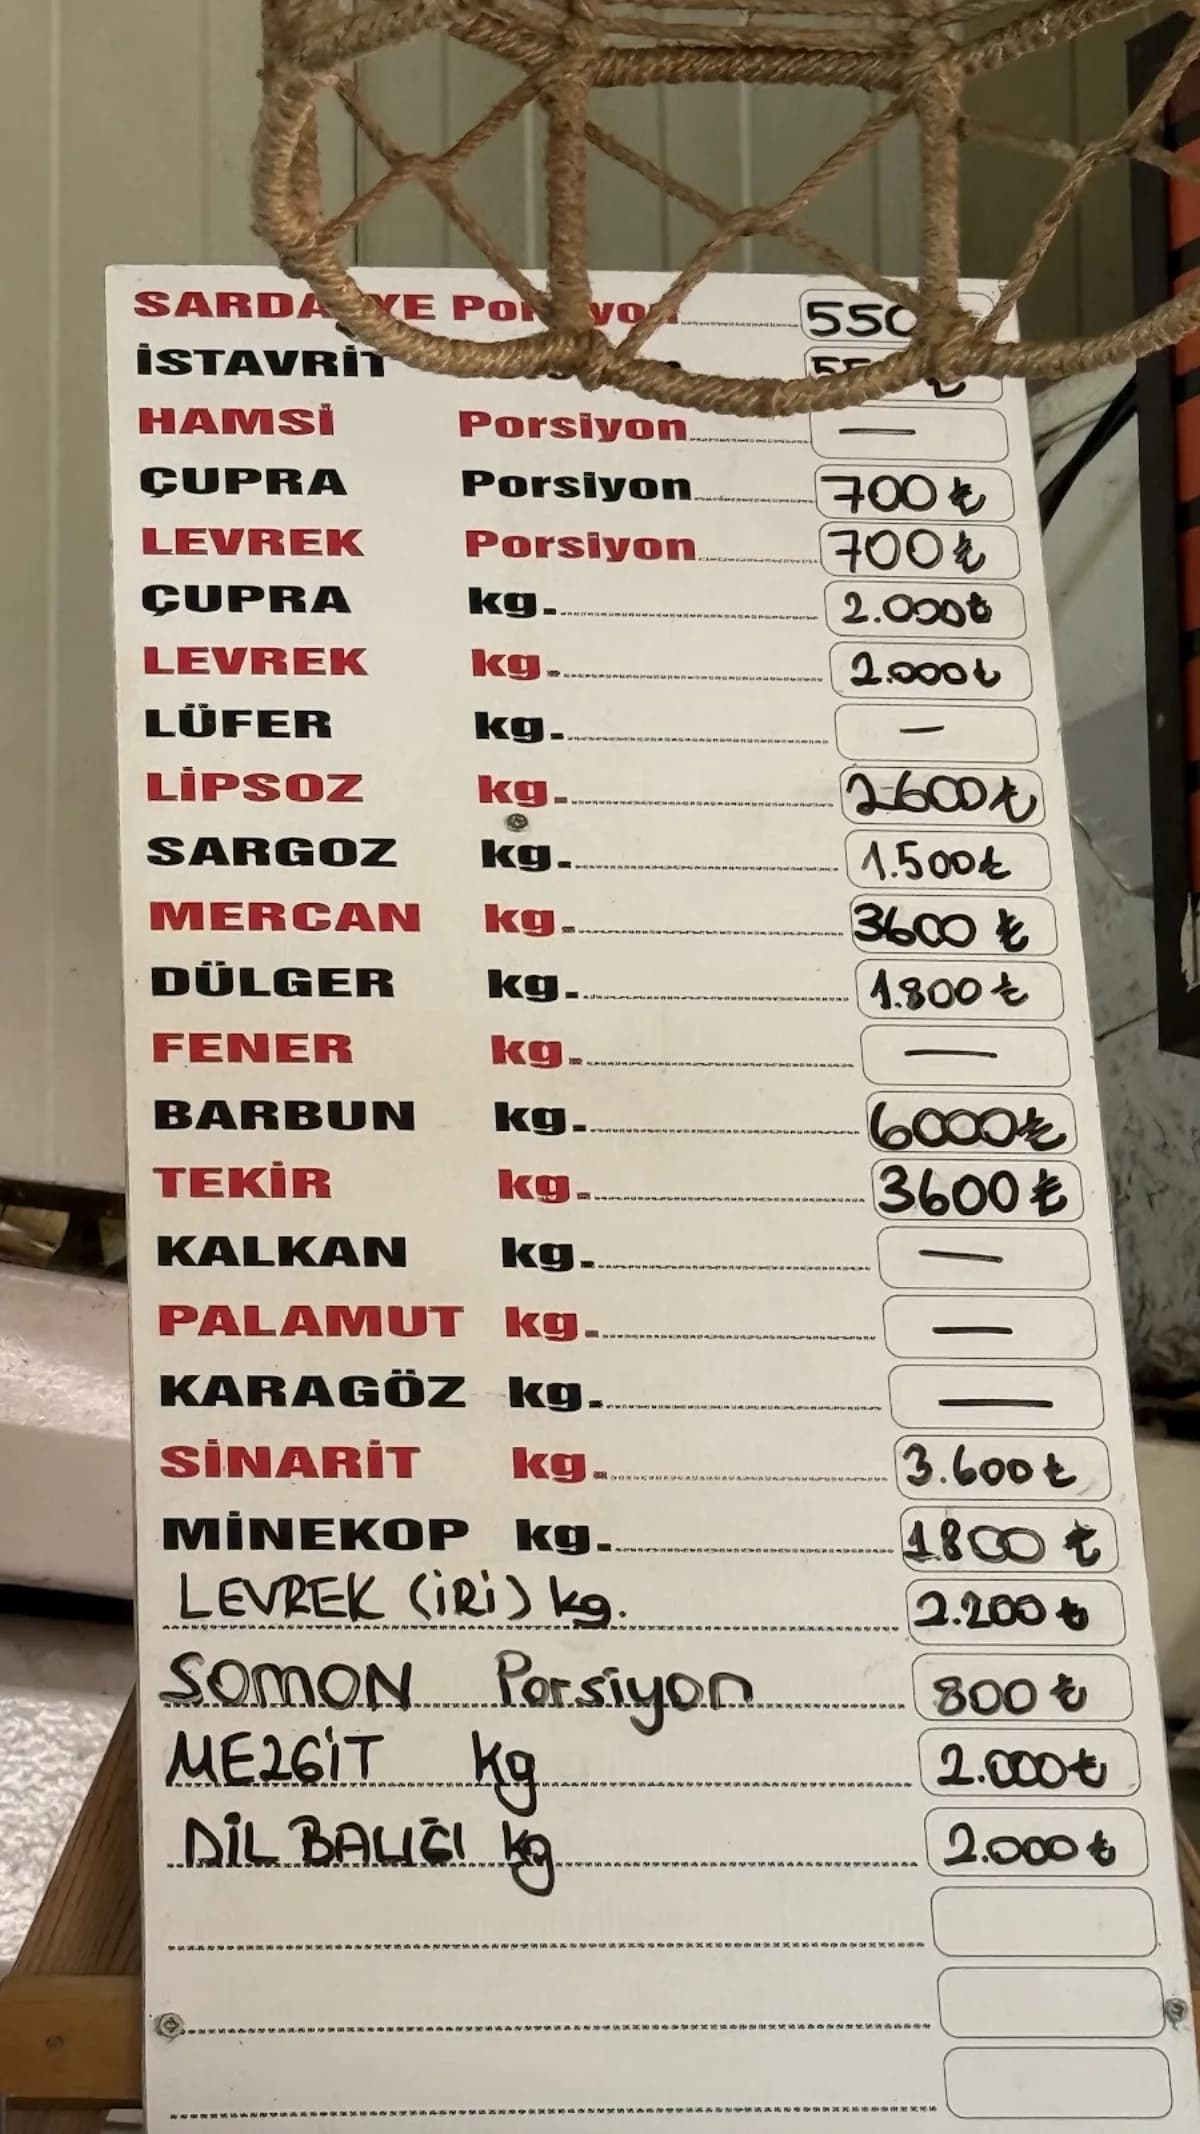 SARDALYE Porsiyon 550
İSTAVRİT
HAMSİ Porsiyon —
ÇUPRA Porsiyon 700 ₺
LEVREK Porsiyon 700 ₺
ÇUPRA kg. 2.000₺
LEVREK kg. 2.000₺
LÜFER kg. —
LİPSOZ kg. 2600₺
SARGOZ kg. 1.500₺
MERCAN kg. 3600 ₺
DÜLGER kg. 1.800 ₺
FENER kg. —
BARBUN kg. 6000₺
TEKİR kg. 3600 ₺
KALKAN kg. —
PALAMUT kg. —
KARAGÖZ kg. —
SİNARİT kg. 3.600 ₺
MİNEKOP kg. 1800 ₺
LEVREK (İRİ) kg. 2.200 ₺
SOMON Porsiyon 800 ₺
MEZGİT kg 2.000₺
DİL BALIĞI kg 2.000 ₺